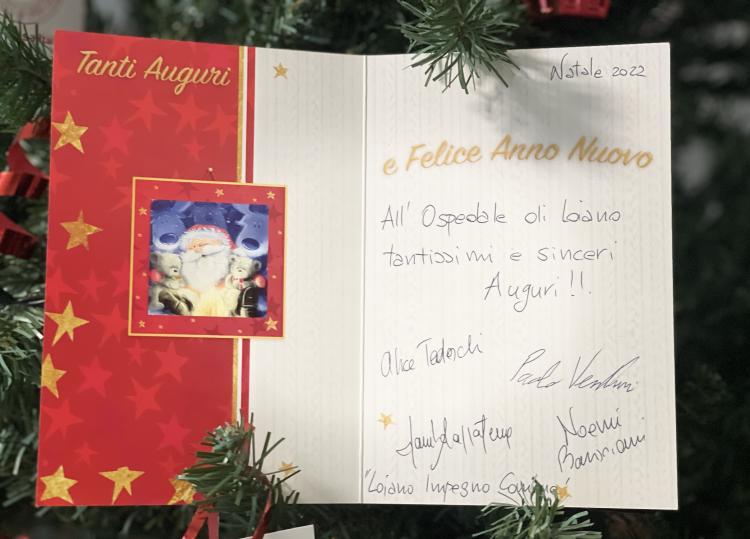 Tanti Auguri
Natale 2022
e Felice Anno Nuovo
All' Ospedale di Loiano
tantissimi e sinceri
Auguri!!.
Alice Tedeschi
Paolo
Noemi
"Loiano Impegno Comune"